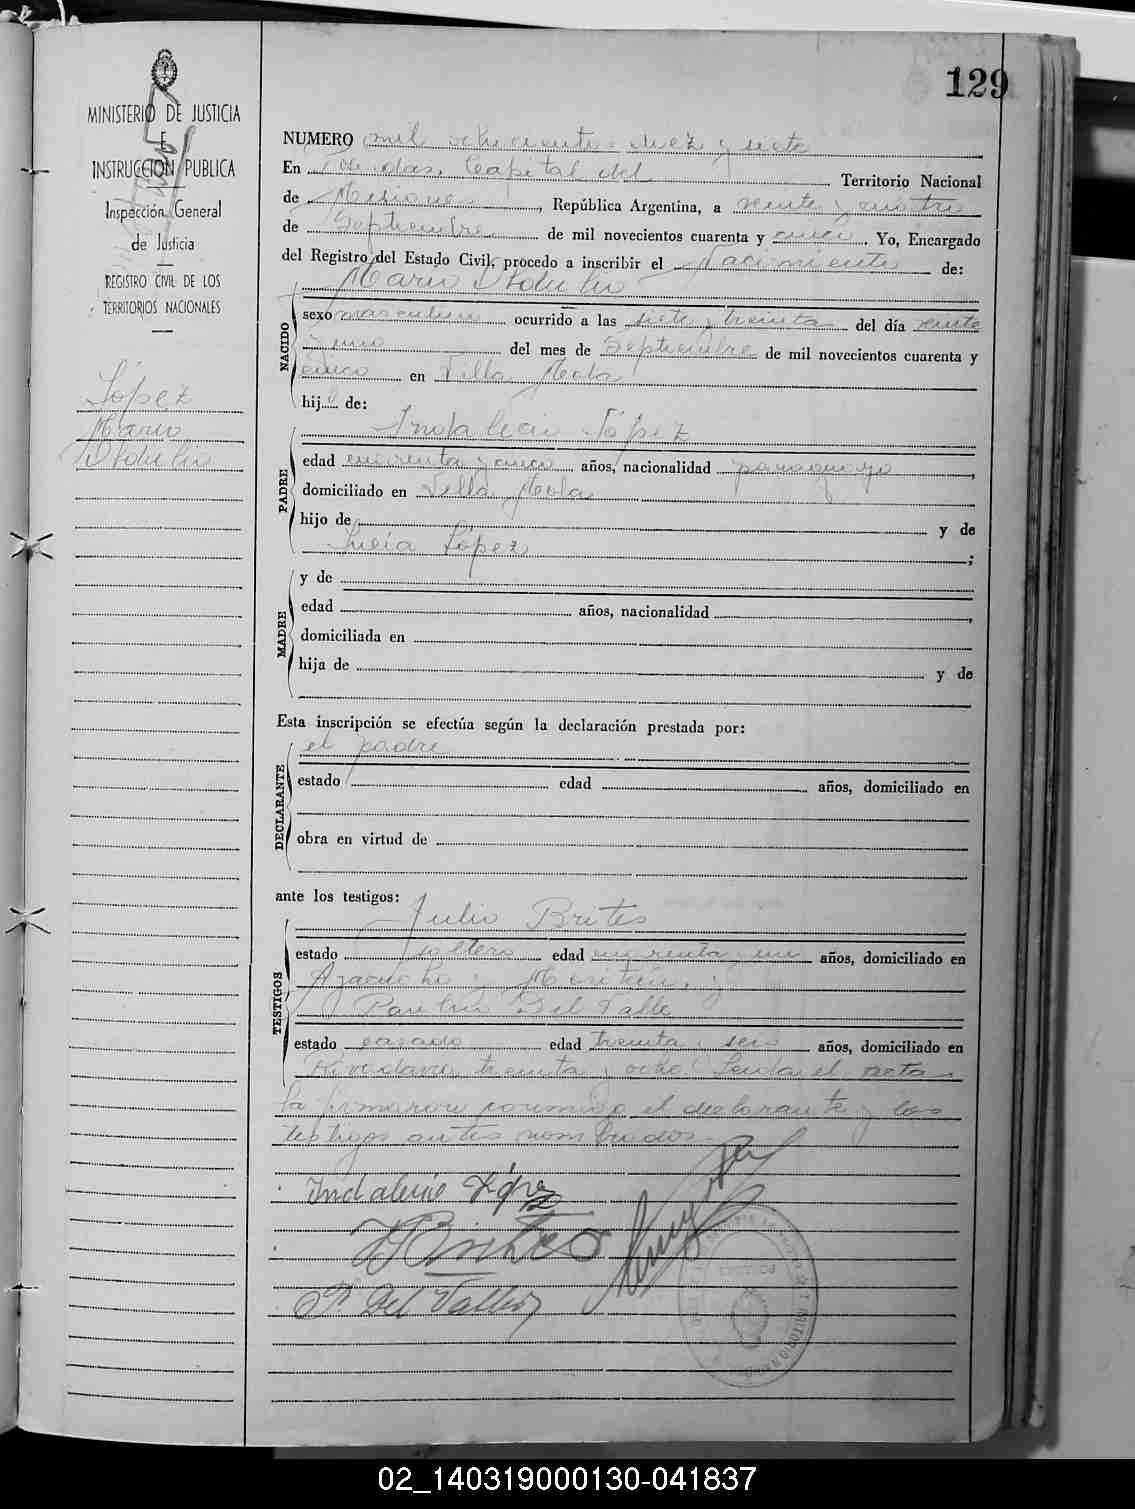 129
MINISTERIO DE JUSTICIA
E
INSTRUCCION PUBLICA
Inspección General
de Justicia
REGISTRO CIVIL DE LOS
TERRITORIOS NACIONALES
López
Mario
NUMERO mil ochocientos diez y siete
En Posadas, Capital del Territorio Nacional
de Misiones, República Argentina, a veinte y cuatro
de Septiembre de mil novecientos cuarenta y cinco. Yo, Encargado
del Registro del Estado Civil, procedo a inscribir el Nacimiento de:
Mario
NACIDO
sexo masculino ocurrido a las siete y treinta del día veinte
del mes de Septiembre de mil novecientos cuarenta y
cinco en Villa Mola
hijo de:
PADRE
Indalecio López
edad cuarenta y cinco años, nacionalidad paraguayo,
domiciliado en Villa Mola
hijo de y de
Lucia López ;
MADRE
y de
edad años, nacionalidad ,
domiciliada en
hija de y de
Esta inscripción se efectúa según la declaración prestada por:
el padre
DECLARANTE
estado edad años, domiciliado en
obra en virtud de
ante los testigos:
Julio Brites
TESTIGOS
estado soltero edad cuarenta, un años, domiciliado en
Ayacucho y
Del Valle
estado casado edad treinta, seis años, domiciliado en
Rivadavia treinta y ocho. Leida el acta
la firmaron conmigo el declarante y los
testigos antes nombrados.
Indalecio López
JBrites
P. Del Valle
POSADAS
02_140319000130-041837